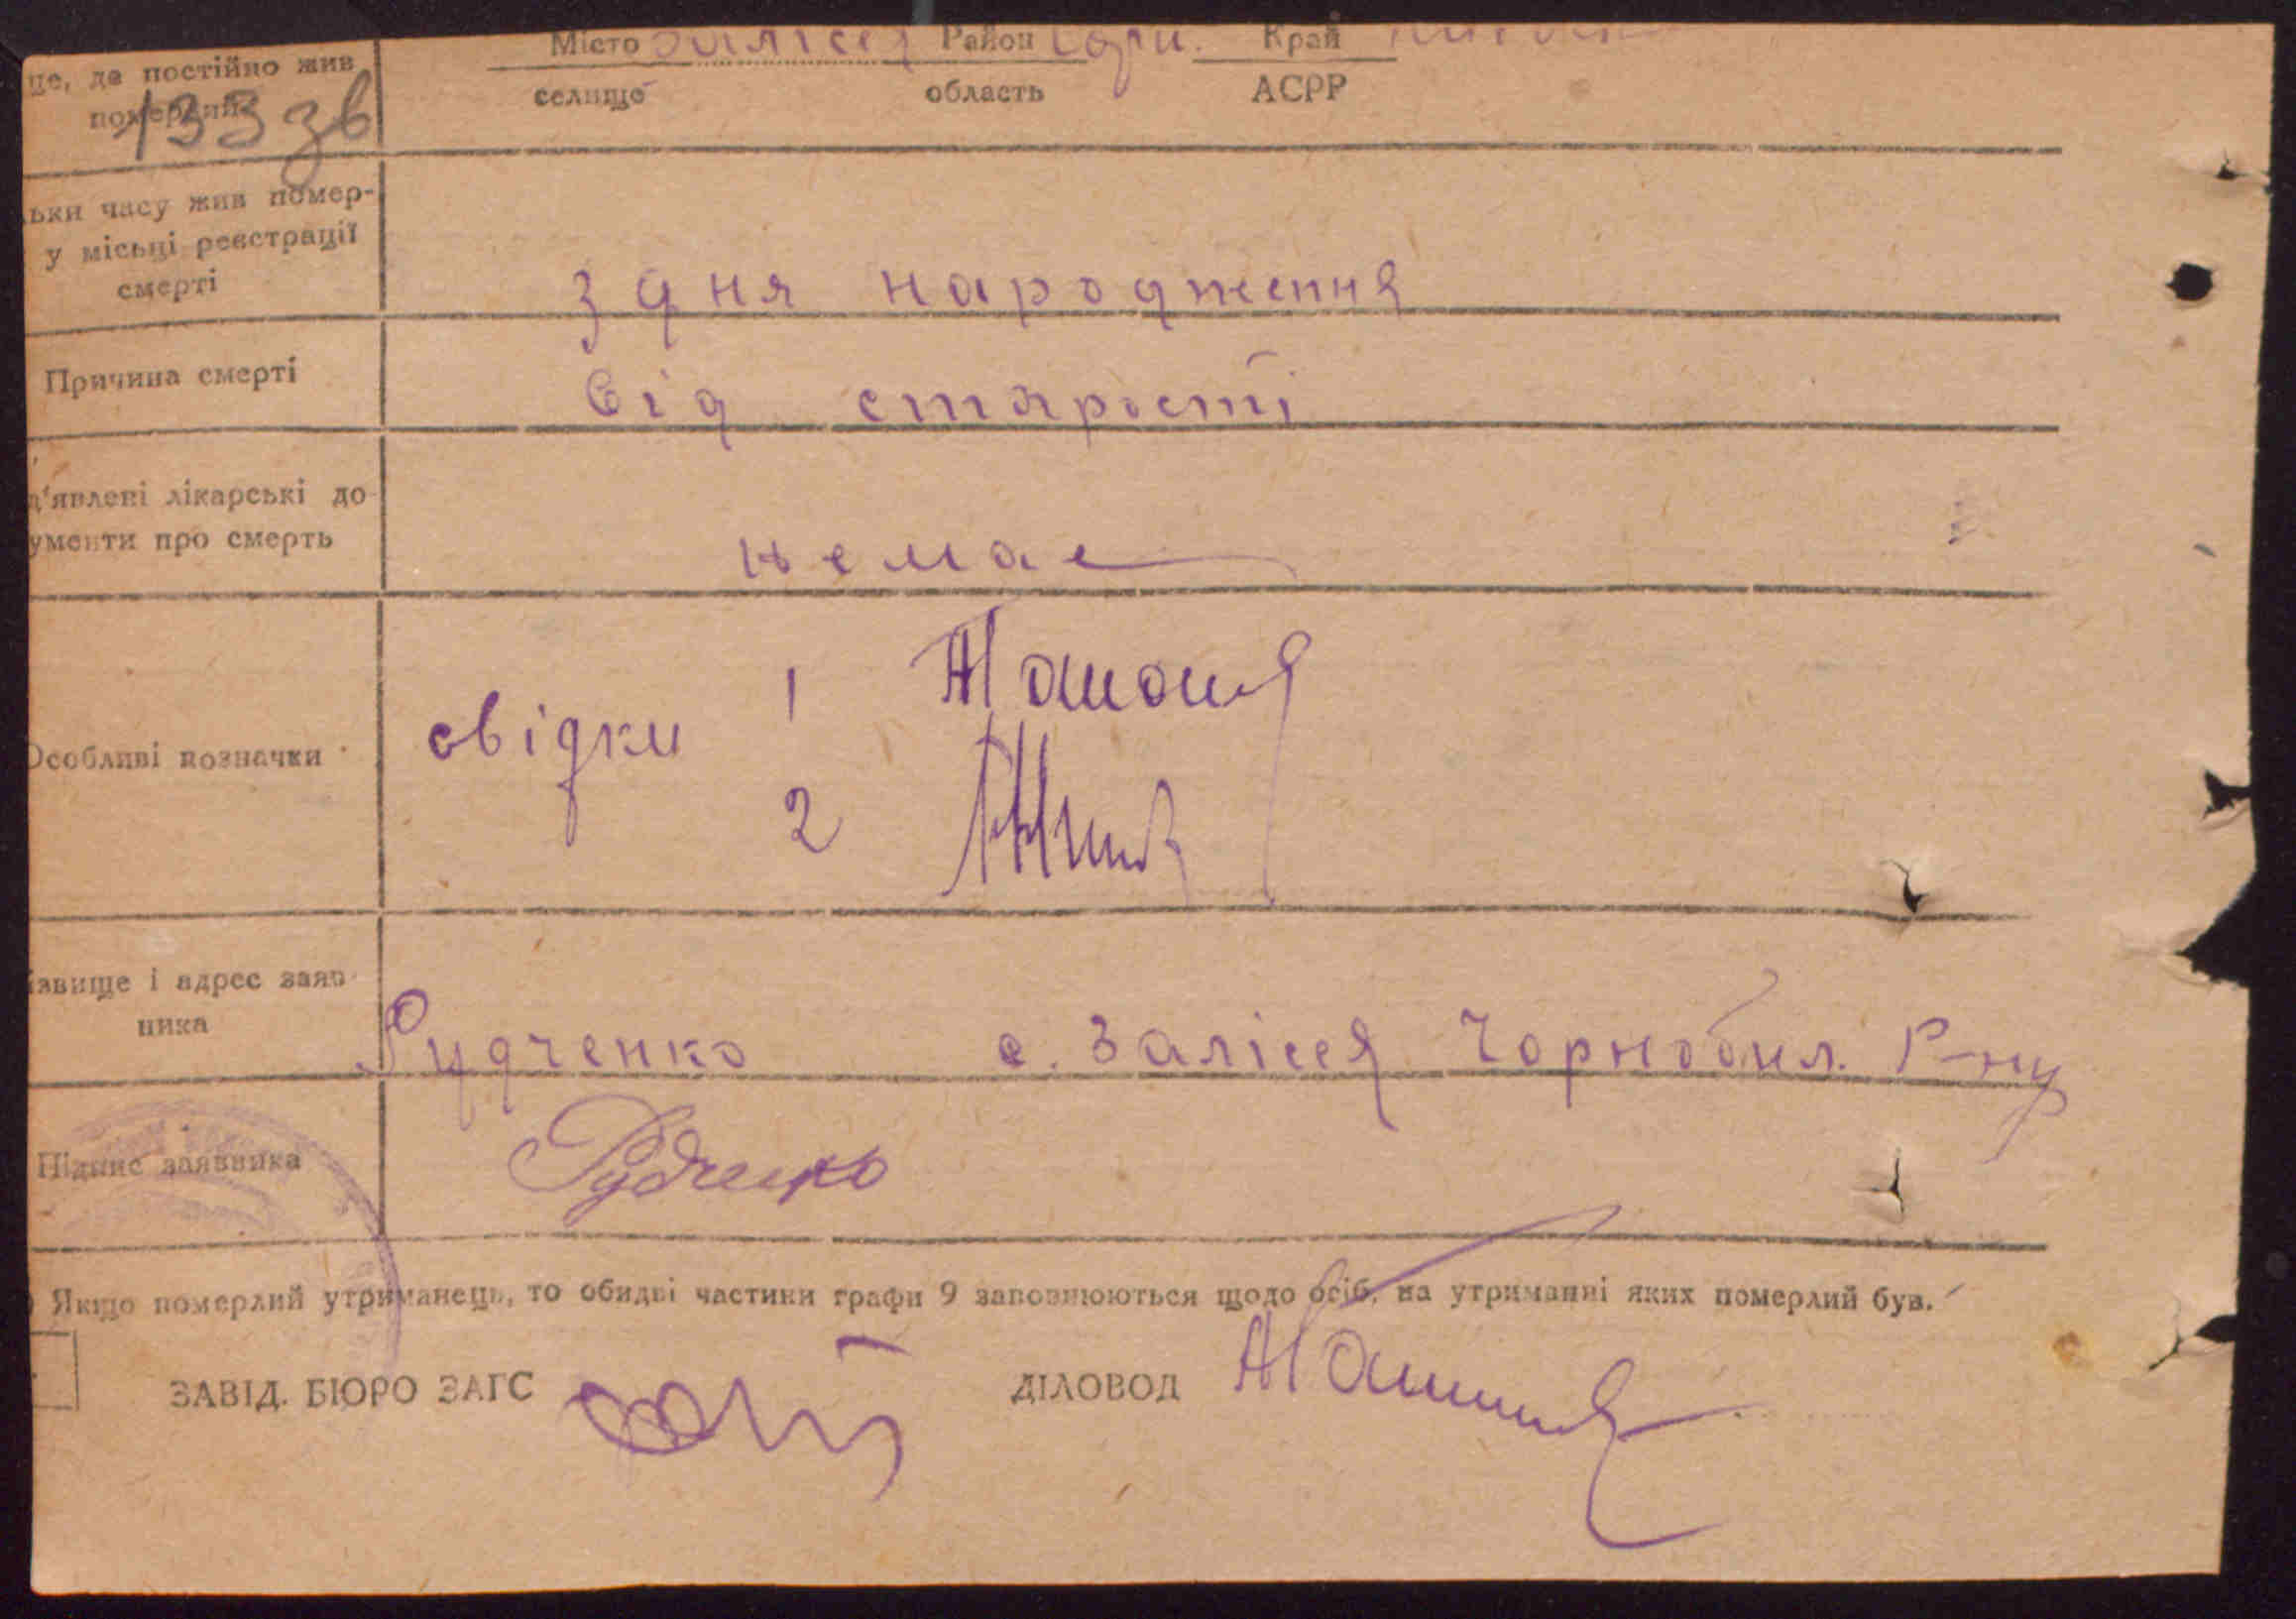 Місто Залісся Район Край
це, де постійно жив
селище область АСРР
померлий
133 зв
ьки часу жив помер-
у місьці реєстрації
смерті
з дня народження
Причина смерті
від старості
д'явлені лікарські до
ументи про смерть
немає
Особливі позначки
свідки 1
2
ізвище і адрес заяв-
ника
Рудченко с. Залісся Чорнобил. р-ну
Підпис заявника
Рудченко
Якщо померлий утриманець, то обидві частини графи 9 заповнюються щодо осіб, на утриманні яких померлий був.
ЗАВІД. БЮРО ЗАГС ДІЛОВОД